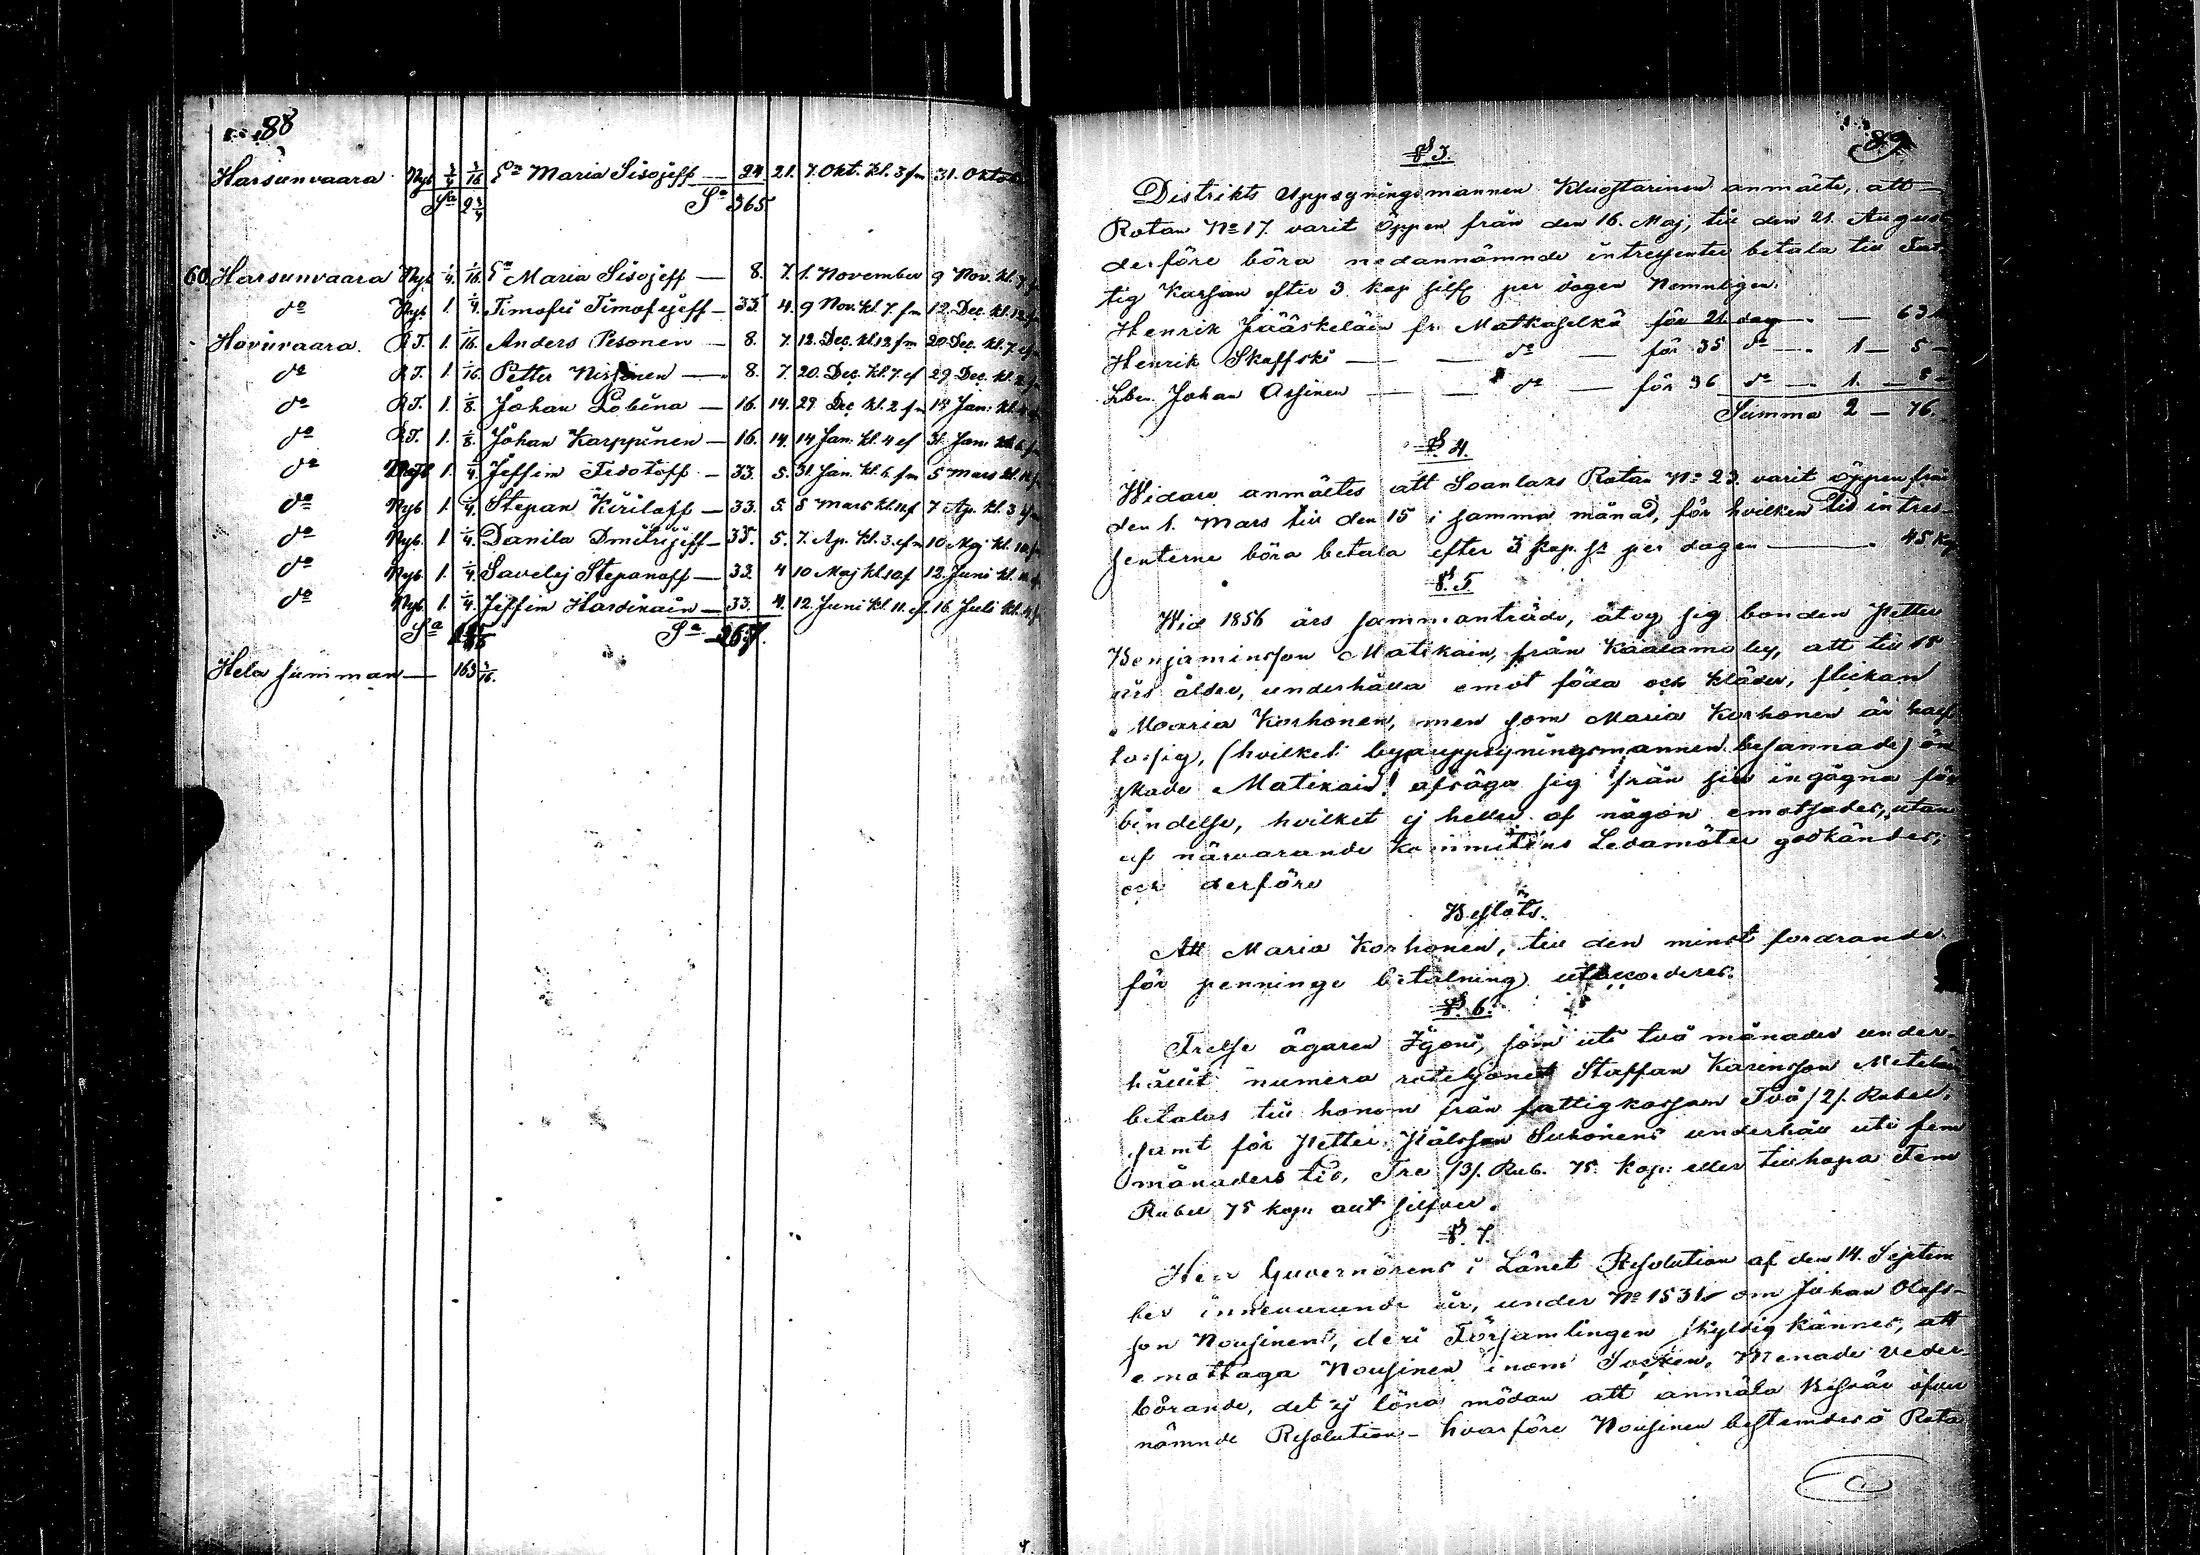 88
Harsunvaara Nyb 1/4 1/16 Ea Maria Sisojeff — 24 21. 7. Okt. kl. 3 fm 31. Oktob
Sa 2 3/4 Sa 365
60 Harsunvaara Nyb 1/4 1/16 Ea Maria Sisojeff — 8. 7. 1. November 9 Nov. kl. 7 f
do Nyb 1. 1/4 Timofei Timofejeff — 33. 4. 9 Nov. kl. 7. fm 12. Dec. kl. 12 f
Hovinvaara. R.T. 1. 1/16. Anders Pesonen — 8. 7. 12. Dec. kl. 12 fm 20 Dec. kl. 7 ef
do R.T. 1. 1/16. Petter Nissinen — 8. 7. 20. Dec. kl. 7. ef 29. Dec. kl. 2 f
do R.T. 1. 1/8. Johan Lobina — 16. 14. 29. Dec kl. 2 fm 14 Jan. kl. 4
do R.T. 1. 1/8. Johan Karppinen — 16. 14. 14 Jan. kl. 4 ef 31. Jan. kl. 6 f
do Nyb 1. 1/4. Jeffim Fedotoff — 33. 5. 31. Jan. kl. 6. fm 5 Mars kl. 11
do Nyb 1. 1/4. Stepan Kirilaff — 33. 5. 5 Mars kl. 11 f 7 Ap. kl. 3 ef
do Nyb. 1. 1/4. Danila Dmitrijeff — 33. 5. 7. Ap. kl. 3. efm 10 Maj kl. 10
do Nyb. 1. 1/4. Savelej Stepanoff — 33. 4 10 Maj kl 10 f 12. Juni kl. 11
do Nyb. 1. 1/4. Jeffim Hardikain — 33. 4. 12. Juni kl. 11. ef 16. Juli kl. 4 f
Sa Sa 267.
Hela summan — 163 3/16.
89
§ 3.
Distrikts Uppsyningsmannen Kluostarinen anmälte, att —
Rotan No 17. varit öppen från den 16. Maj, till den 21. August
derföre böra nedannämnde intressenter betala till Fat-
tig Kassan efter 3 kop silfr per dagen Nemnligen.
Henrik Jääskeläin fr. Matkaselkä för 21. dag — — 63
Henrik Skaffski — — do — för 35 do — 1 — 5 —
Lbn. Johan Assinen — — do — för 36 do — 1. — 8 —
Summa 2 — 76.
§ 4.
Widare anmältes att Soanlaks Rotan No 23. varit öppen från
den 1. Mars till den 15 i samma månad, för hvilken tid intres-
senterne böra betala efter 3 kop. sr per dagen — 45 kop
§. 5
Wid 1856 års sammanträde, åtog sig bonden Petter
Benjaminsson Matikain, från Kaalamo by, att till 15
års ålder, underhålla emot föda och kläder, flickan
Maria Korhonen, men som Maria Korhonen är half
tosig, (hvilket byauppsyningsmannen besannade) ön
skade Matikain afsäga sig från sin ingågna för
bindelse, hvilket ej heller af någon emotsades, utan
af närvarande Kommitéens Ledamöter godkändes;
och derföre
Beslöts.
Att Maria Korhonen, till den minst fordrande
för penninge betalning utackorderes.
§. 6.
Frelse ägaren Igoni, som uti två månader under-
hållit numera rotehjonet Staffan Karinsson Metelän
betalas till honom från fattigkassan Två /2/. Rubel.
samt för Petter Pålsson Suhonens underhåll uti fem
månaders tid, Tre /3/. Rub. 75. kop: eller tillhopa Fem
Rubel 75 kop: allt silfver.
§. 7.
Herr Guvernörens i Länet Resolution af den 14. Septem
ber innevarande år, under No 1531 om Johan Olofs-
son Nousinen, deri Församlingen skyldig kännes, att
emottaga Nousinen inom Socken. Menade veder-
börande, det ej löna mödan att anmäla Besvär öfver
nämnde Resolution — hvarföre Nousinen bestemdes å Rota